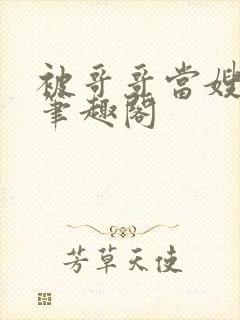 被哥哥当嫂
笔趣阁
芳草天使